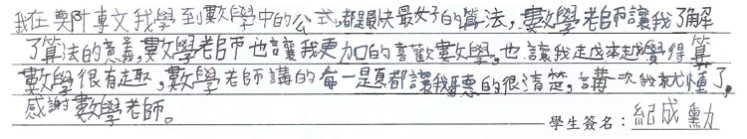 我在奧林專文我學到數學中的公式,都是最快最好的算法,數學老師讓我了解
了算法的意義,數學老師也讓我更加的喜歡數學,也讓我越來越覺得算
數學很有趣,數學老師講的每一題都讓我聽的很清楚,講一次我就懂了。
感謝數學老師。
學生簽名:紀成勳